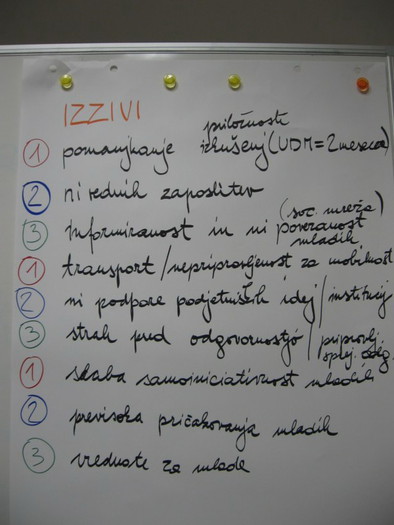 IZZIVI
priložnosti
1 pomanjkanje izkušenj (UDM = 2 meseca)
2 ni rednih zaposlitev
(soc. mreža)
3 informiranost in ni povezanost
mladih
1 transport / nepripravljenost za mobilnost
2 ni podpore podjetniških idej / institucij
3 strah pred odgovornostjo / pripravlj.
splej. odg.
1 slaba samoiniciativnost mladih
2 previsoka pričakovanja mladih
3 vrednote za mlade